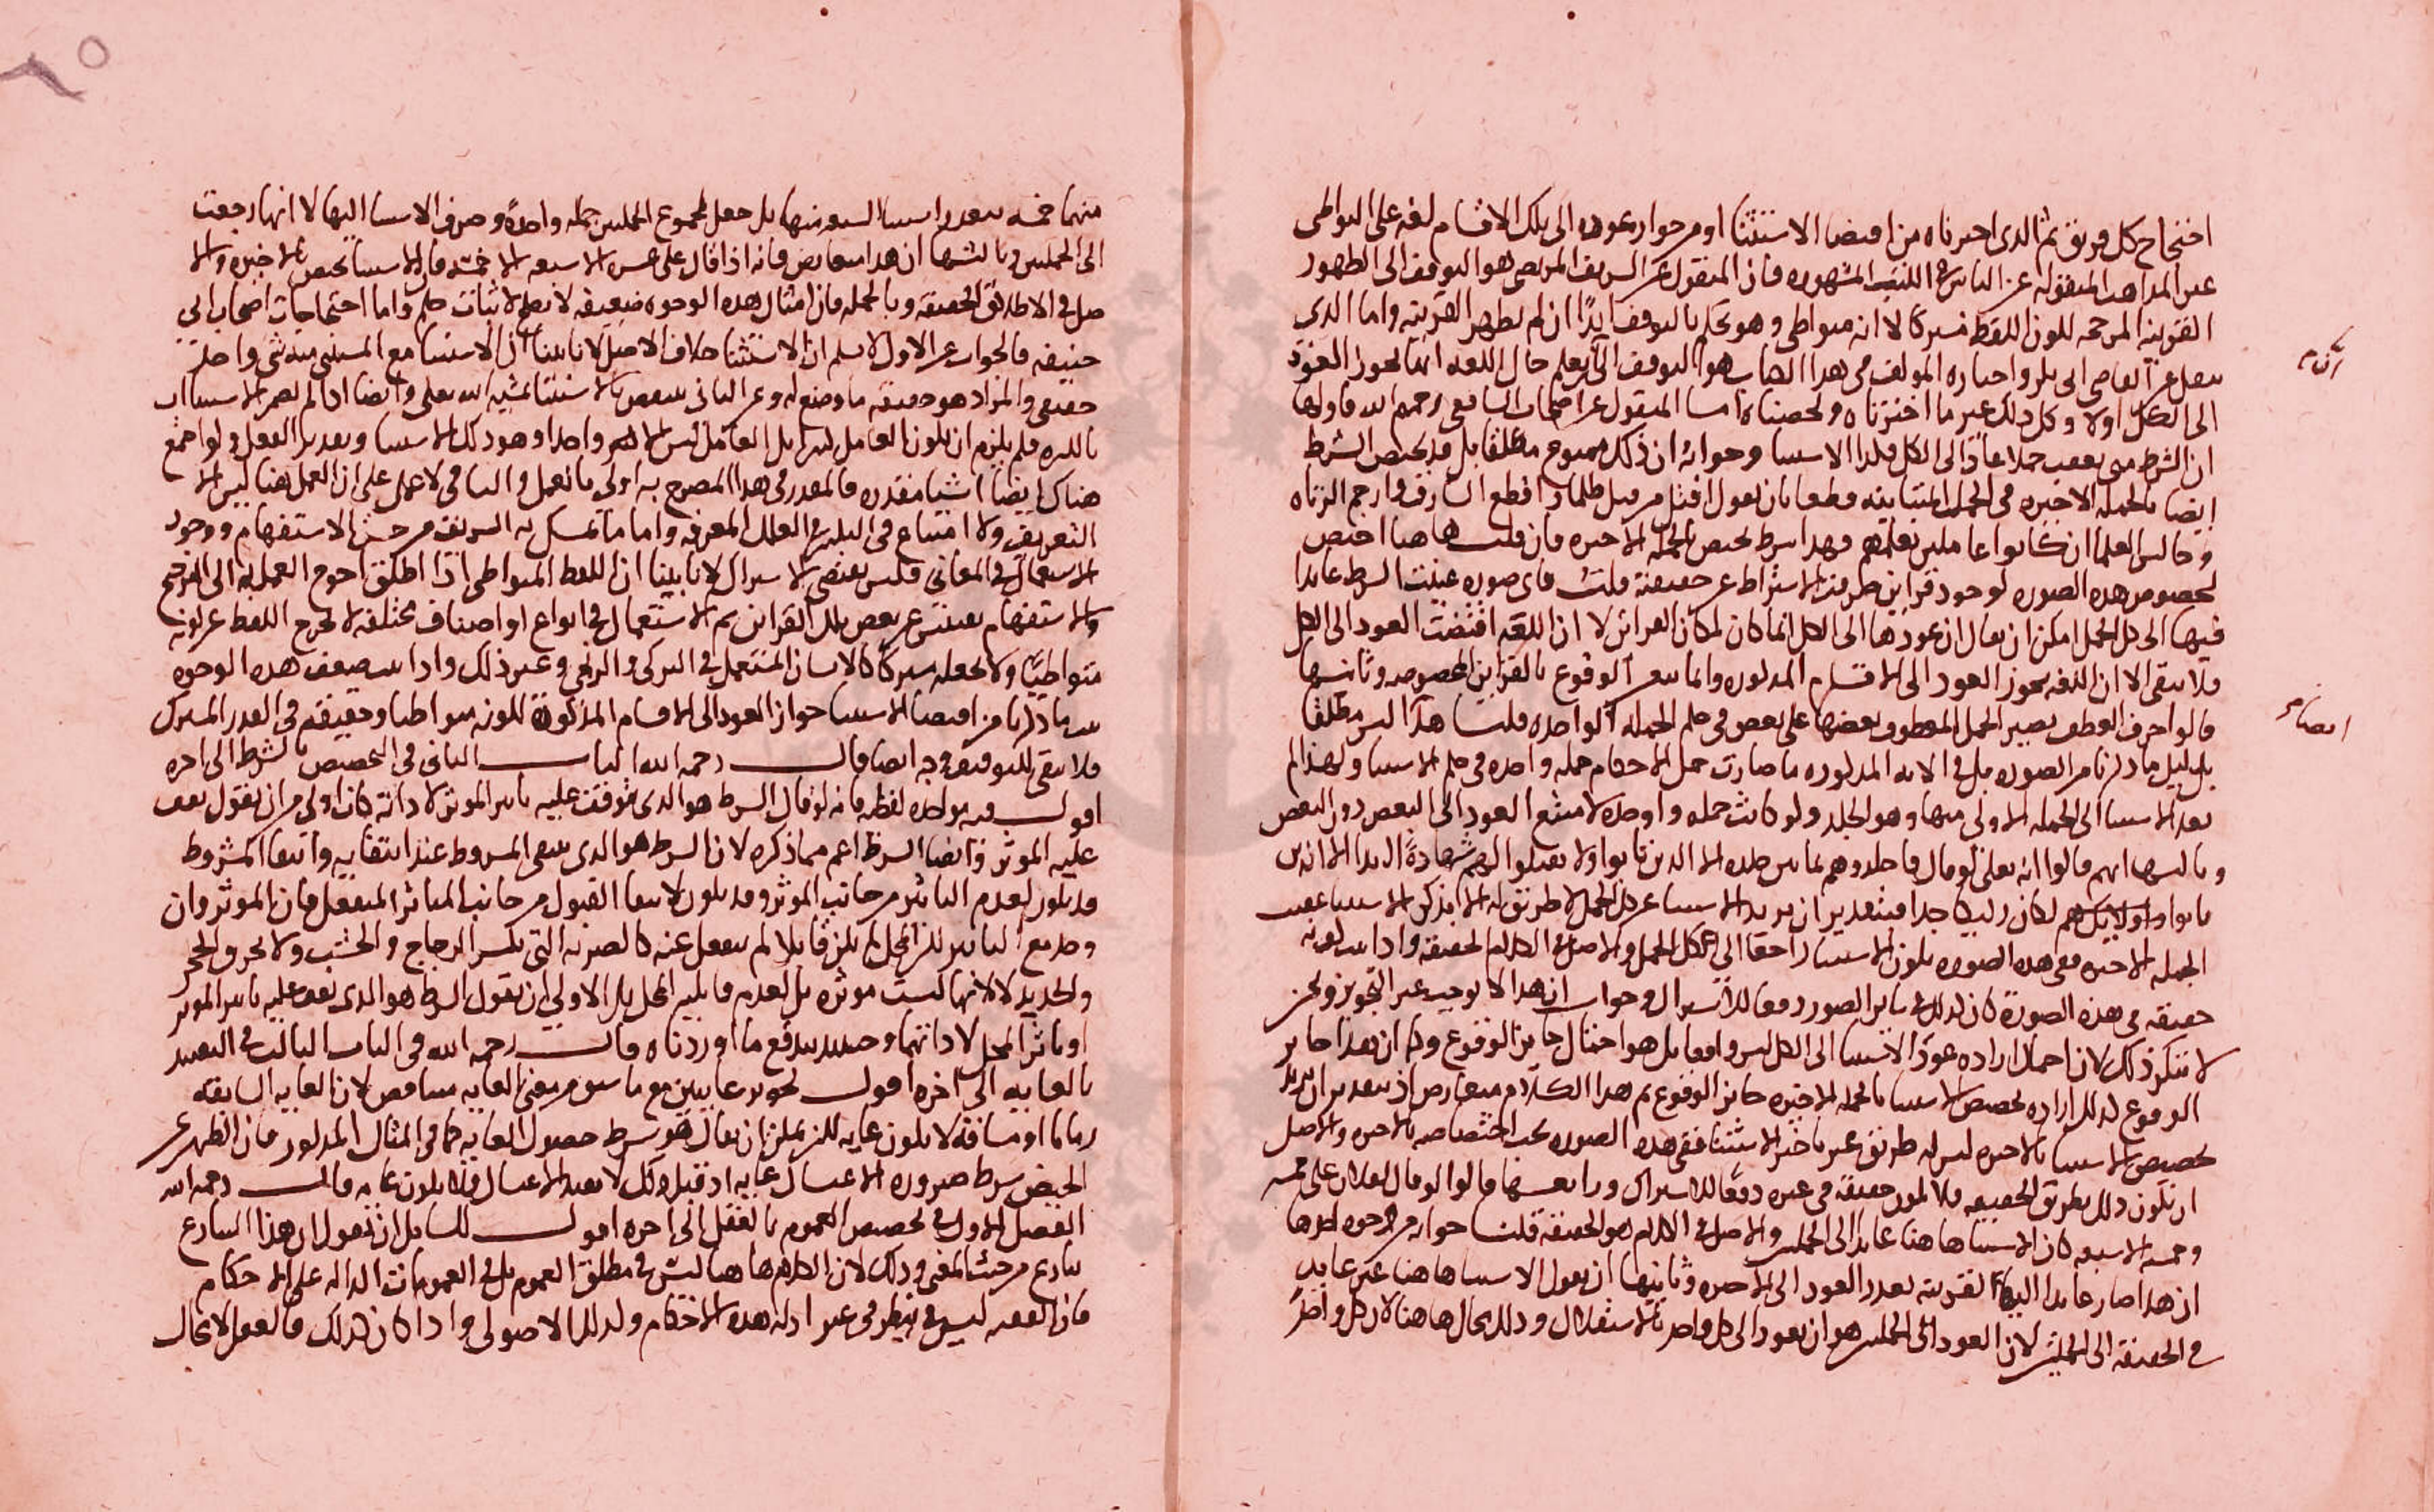 احتجاج كل فريق ثم الذي اخترناه من اقتضا الاستثنا او من جواز عوده الى تلك الاقسام لغة على التواطى
غير المذاهب المنقولة عن الناس في الكتب المشهورة فان المنقول عن الشريف المرتضى هو التوقف الى الظهور
القرينة المرجحة لكون اللفظ مشتركا لا انه متواطى وهو يحكم بالتوقف ابدًا ان لم يظهر القرينة واما الذي
نقل عن القاضي ابي بكر واختاره المولف في هذا الكتاب هو التوقف الى ان يعلم حال اللغة انها تجوز العود
الى الكل اولا وكل ذلك غير ما اخترناه ولخصناه اما المنقول عن اصحاب الشافعي رحمهم الله فاولها
ان الشرط متى تعقب جملا عاد الى الكل فكذا الاستثنا وجوابه ان ذلك ممنوع مطلقا بل قد يختص الشرط
ايضا بالجملة الاخيرة في الجمل المتباينة قطعا بان يقول اقتل من قتل ظلما واقطع السارق وارجم الزناه
وجالس العلما ان كانوا عاملين بعلمهم فهذا شرط يختص بالجملة الاخيرة فان قلت هاهنا اختص
لخصوص هذه الصورة لوجود قراين صرفت الاشتراط عن حقيقته قلت فاي صورة عينت الشرط عايدا
فيها الى كل الجمل امكن ان يقال ان عودها الى الكل انما كان لمكان القراين لا ان اللغة اقتضت العود الى الكل
فلا يبقى الا ان اللغة تجوز العود الى الاقسام المذكورة وانما يتعين الوقوع بالقراين المخصوصة وثانيها
قالوا حرف العطف يصير الجمل المعطوف بعضها على بعض في حكم الجملة الواحدة قلنا هذا ليس مطلقا
بدليل ما ذكرنا من الصورة بل في الاية المذكورة ما صارت جمل الاحكام جملة واحدة في حكم الاستثنا ولهذا لم
يعد الاستثنا الى الجملة الاولى منها وهو الجلد ولو كانت جملة واحدة لامتنع العود الى البعض دون البعض
وثالثها انهم قالوا انه تعالى لو قال فاجلدوهم ثمانين جلدة الا الذين تابوا ولا تقبلوا لهم شهادةً ابدا الا الذين
تابوا واولايك هم لكان ركيكا جدا فبتقدير ان يريد الاستثنا عن كل الجمل لا طريق له الا بذكر الاستثنا عقيب
الجملة الاخيرة ففي هذه الصورة يكون الاستثنا راجعا الى كل الجمل والاصل في الكلام الحقيقة واذا ثبت كونه
حقيقة في هذه الصورة كان كذلك في ساير الصور دفعا للاشتراك وجوابه ان هذا لا يوجب غير التجويز ونحن
لا ننكر ذلك لان احتمال ارادة عود الاستثنا الى الكل ليس واقعا بل هو احتمال جايز الوقوع وكما ان هذا جايز
الوقوع كذلك ارادة تخصيص الاستثنا بالجملة الاخيرة جايز الوقوع ثم هذا الكلام متعارض اذ بتقدير ان يريد
تخصيص الاستثنا بالاخيرة ليس له طريق غير تاخير الاستثنا ففي هذه الصورة يجب اختصاصه بالاخيرة والاصل
ان يكون ذلك بطريق الحقيقة فلا يكون حقيقة في غيره دفعًا للاشتراك ورابعها قالوا لو قال لفلان على خمسة
وخمسة الا سبعة كان الاستثنا هاهنا عايدا الى الجملتين والاصل في الكلام هو الحقيقة قلنا جوابه من وجوه احدها
ان هذا صار عايدا اليهما لقرينة تعذر العود الى الاخيرة وثانيها ان نقول الاستثنا هاهنا غير عايد
في الحقيقة الى الجملتين لان العود الى الجملتين هو ان يعود الى كل واحد بالاستقلال وذلك محال هاهنا لان كل واحد
منهما خمسة يتعذر استثنا السبعة منها بل جعل مجموع الجملتين جملة واحدة وصرف الاستثنا اليها لا انها رجعت
الى الجملتين وثالثها ان هذا معارض فانه اذا قال على عشرة الا سبعة الا خمسة فان الاستثنا يختص بالاخيرة والا
صل في الاطلاق الحقيقة وبالجملة فان امثال هذه الوجوه ضعيفة لا يصلح لاثبات حكم واما احتجاجات اصحاب ابي
حنيفة فالجواب عن الاول لا نسلم ان الاستثنا خلاف الاصل لانا بينا ان الاستثنا مع المستثنى منه شى واحد
حقيقى والمراد هو حقيقة ما وضع له وعن الثاني ينتقض بالاستثنا بمشية الله تعالى وايضا اذا لم يضمر الاستثنا ات
بالكثرة فلم يلزم ان يكون العامل كثيرا بل العامل ليس الا شى واحدا وهو ذلك الاستثنا وتقدير الفعل ولو اجتمع
هناك ايضا اشيا مقدرة فالمقدر في هذا المصرح به اولى بالعمل والباقي لا عمل على ان العمل هنا ليس الا
التعريف ولا امتناع في البلية في العلل المعرفة واما ما تمسك به الشريف من حسن الاستفهام ووجود
الاستعمال في المعاني فليس يقتضى الاشتراك لانا بينا ان اللفظ المتواطى اذا اطلق احوج العمل به الى المرجح
والاستفهام تفتيش عن بعض تلك القراين ثم الاستعمال في انواع او اصناف مختلفة لا يخرج اللفظ عن كونه
متواطيًا ولا يجعله مشتركا كالانسان المستعمل في التركي والزنجي وغير ذلك واذا ثبت ضعف هذه الوجوه
ثبت ما ذكرنا من اقتضا الاستثنا جواز العود الى الاقسام المذكورة لكونه متواطيا وحقيقة في القدر المشترك
فلا يبقى للتوقف وجه ايضا قال رحمه الله الباب الثاني في التخصيص بالشرط الى اخره
اقول فيه مواخذه لفظيه فانه لو قال الشرط هو الذي يتوقف عليه تاثير الموثر لا ذاته كان اولى من ان يقول يقف
عليه الموثر وايضا الشرط اعم مما ذكره لان الشرط هو الذي ينتفى المشروط عند انتفايه وانتفا المشروط
قد يكون لعدم التاثير من جانب الموثر وقد يكون لانتفا القبول من جانب المتاثر المنفعل فان الموثر وان
وجد مع التاثير لكن المحل لم يكن قابلا لم ينفعل عنه كالضربة التي تكسر الزجاج والخشب ولا تحرق الحجر
والحديد لا لانها ليست موثرة بل لعدم قابلية المحل بل الاولى ان يقول الشرط هو الذي يقف عليه تاثير الموثر
او تاثر المحل لا ذاتهما وحينئذ يندفع ما اوردناه قال رحمه الله في الباب الثالث في التقييد
بالغاية الى اخره اقول تجويز غايتين مع ما سبق من معنى الغاية متناقض لان الغاية السابقة
زمانا او مسافة لا يكون غاية لكن يمكن ان يقال هو شرط حصول الغاية كما في المثال المذكور فان الطهر عن
الحيض شرط صيرورة الاغتسال غاية اذ قبل ذلك لا يفيد الاغتسال فلا يكون غاية قال رحمه الله
الفصل الاول في تخصيص العموم بالعقل الى اخره اقول للسايل ان يقول ان هذا التنازع
تنازع من حيث المعنى وذلك لان الكلام هاهنا ليس في مطلق العموم بل في العمومات الدالة على الاحكام
فان الفقيه ليس ينظر في غير ادلة هذه الاحكام وكذلك الاصولي واذا كان كذلك فالعقل لا مجال